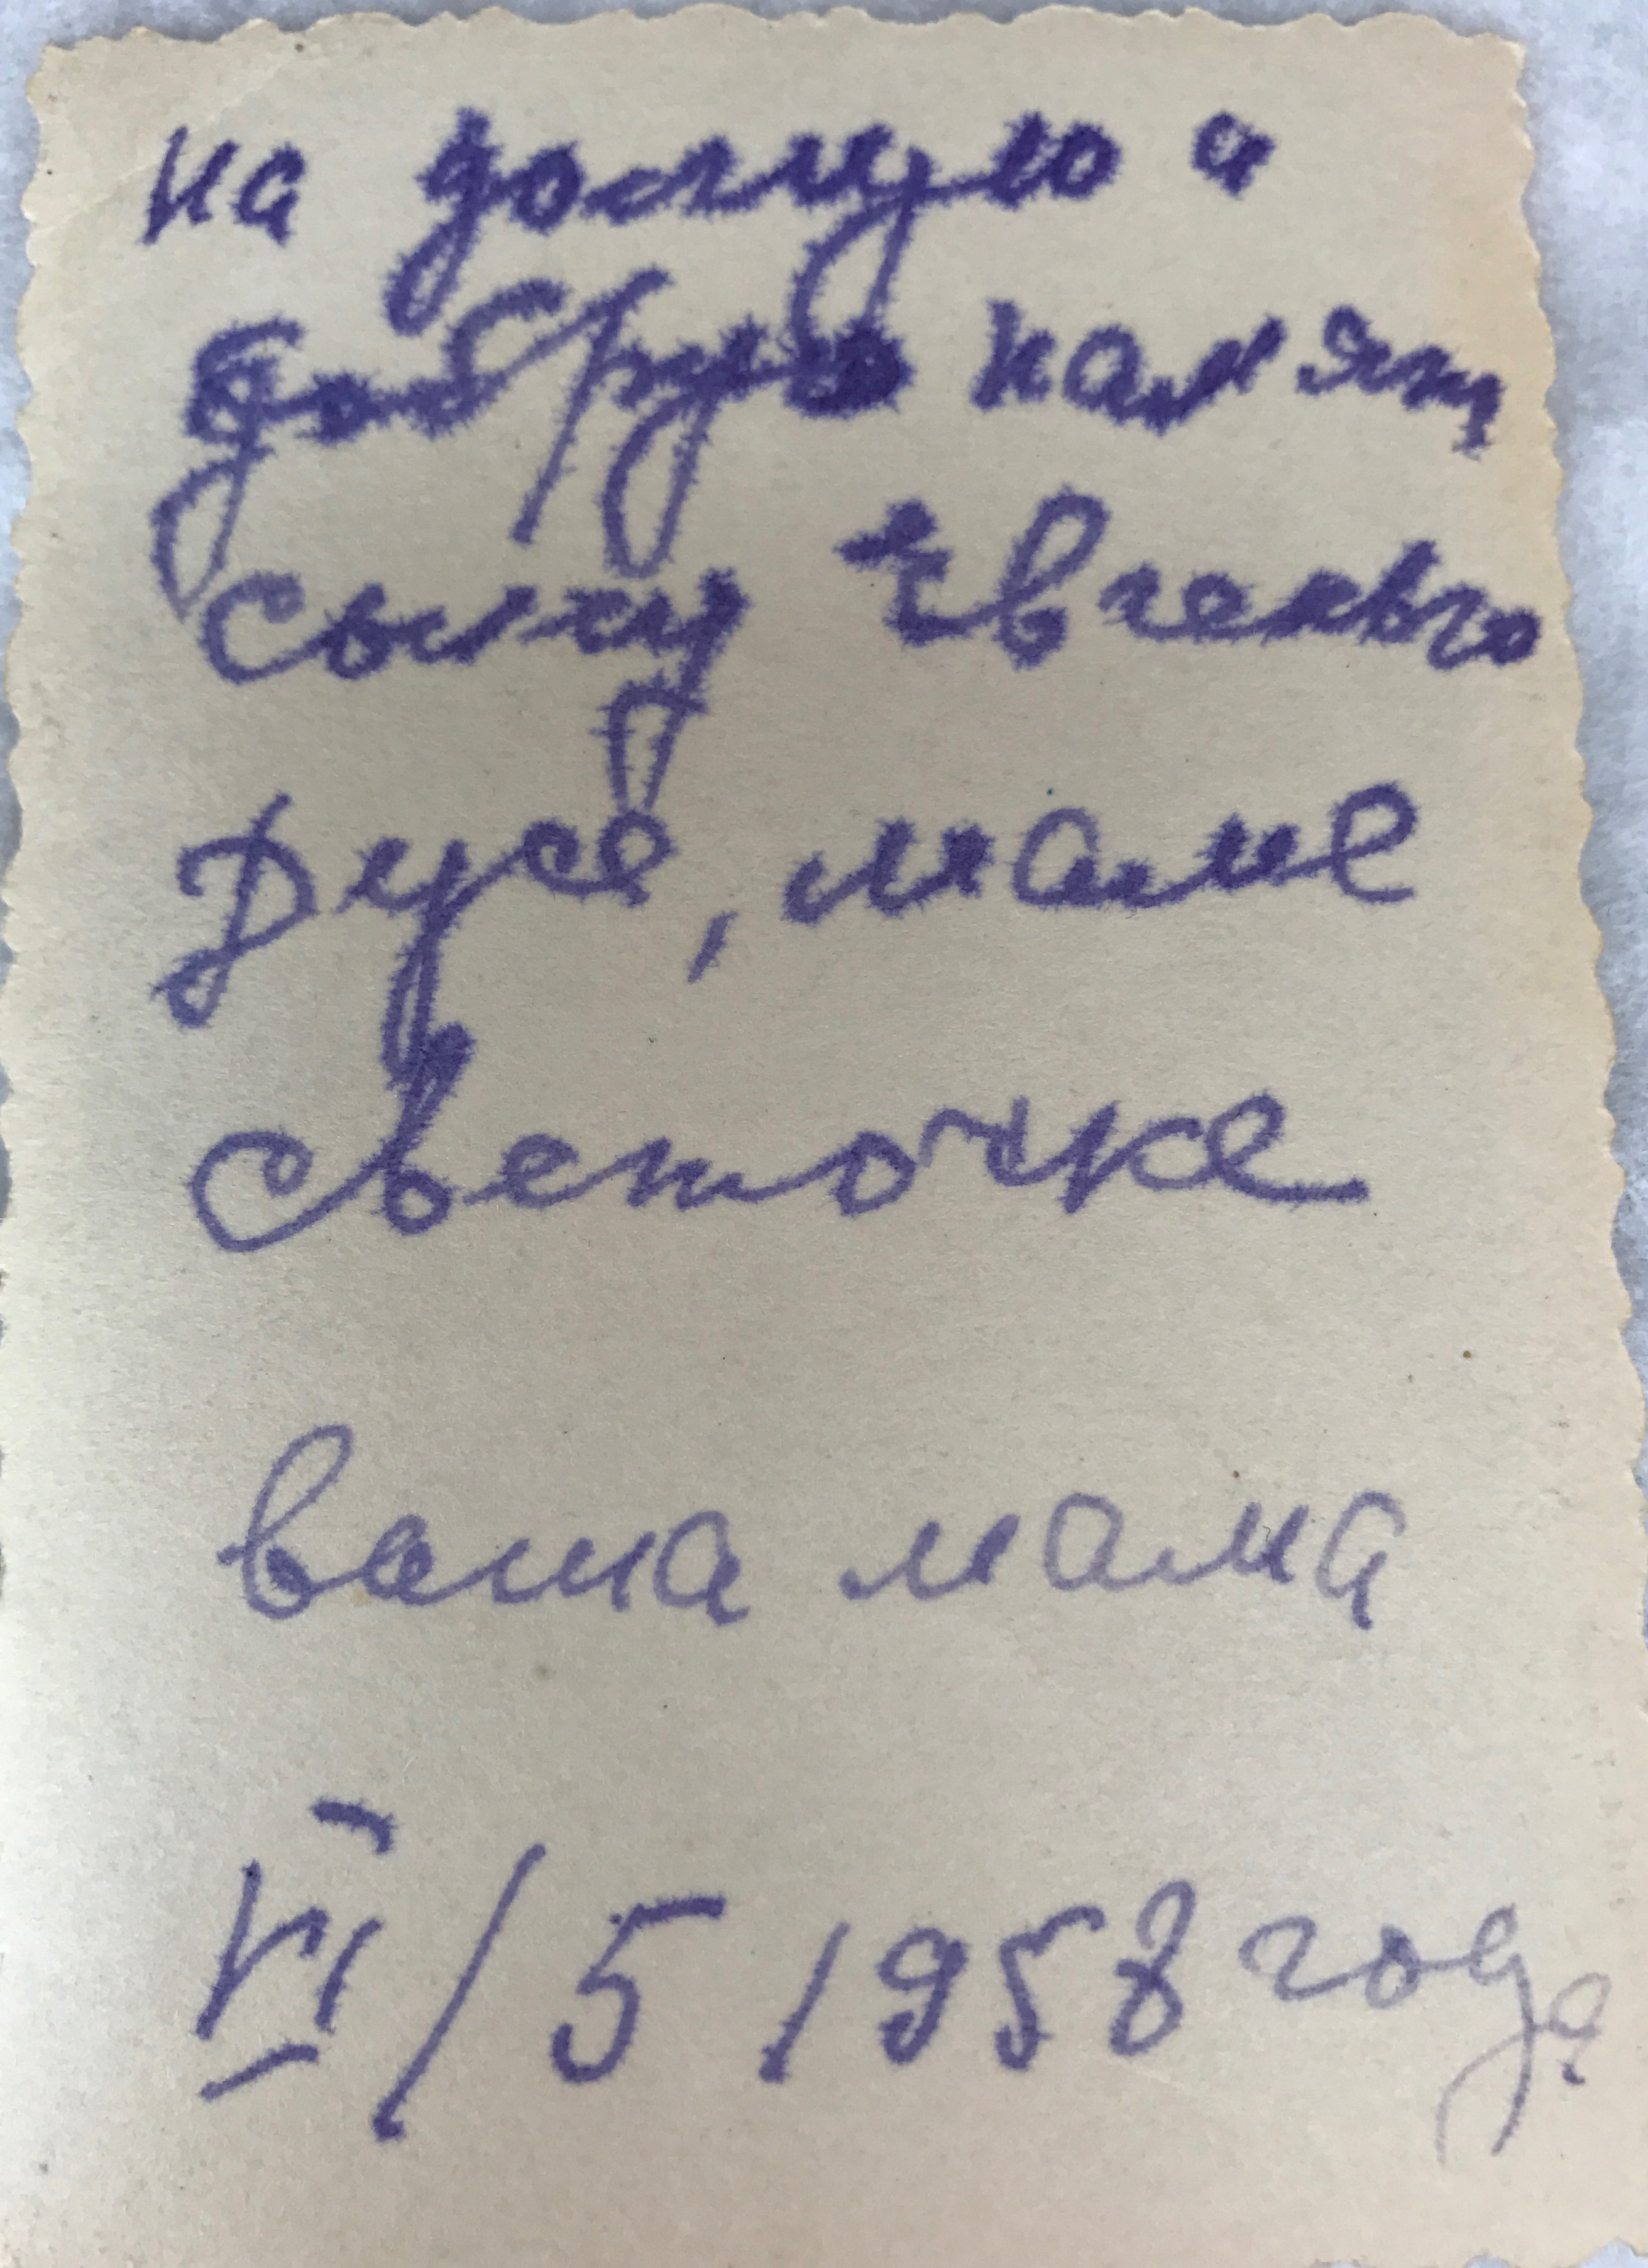 на долгую и
добрую памят
сыну Евгенью
Дусе, маме
Светочке
ваша мама
VI/5 1958 года